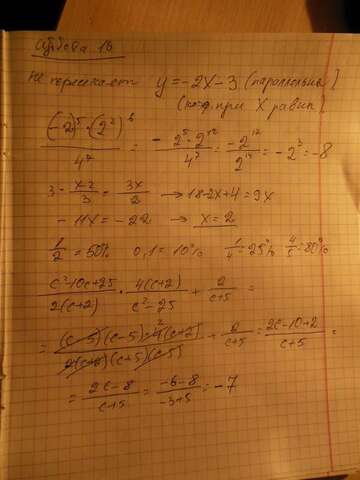 Суббота 18
Не пересекает y = -2x - 3 (параллельна)
(коэф. при x равны)
(-2)^5 · (2^2)^6 / 4^7 = - 2^5 · 2^12 / 4^7 = -2^17 / 2^14 = -2^3 = -8
3 - x-2 / 3 = 3x / 2 → 18 - 2x + 4 = 9x
- 11x = - 22 → x = 2
1/2 = 50% 0,1 = 10% 1/4 = 25% 4/5 = 80%
c^2-10c+25 / 2(c+2) · 4(c+2) / c^2-25 + 2 / c+5 =
= (c-5)(c-5) · 4(c+2) / 2(c+2)(c+5)(c-5) + 2 / c+5 = 2c-10+2 / c+5 =
= 2c-8 / c+5 = -6-8 / -3+5 = -7